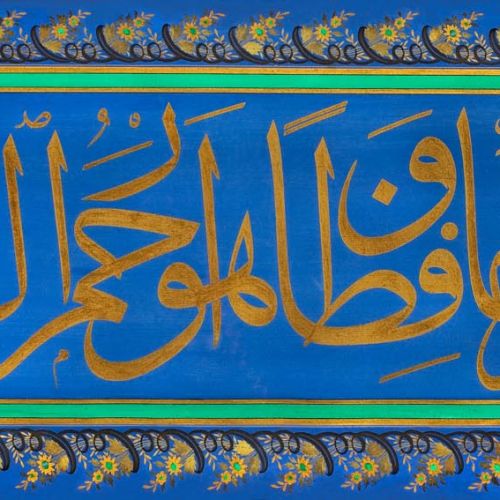 حافظًا وهو ارحم ال